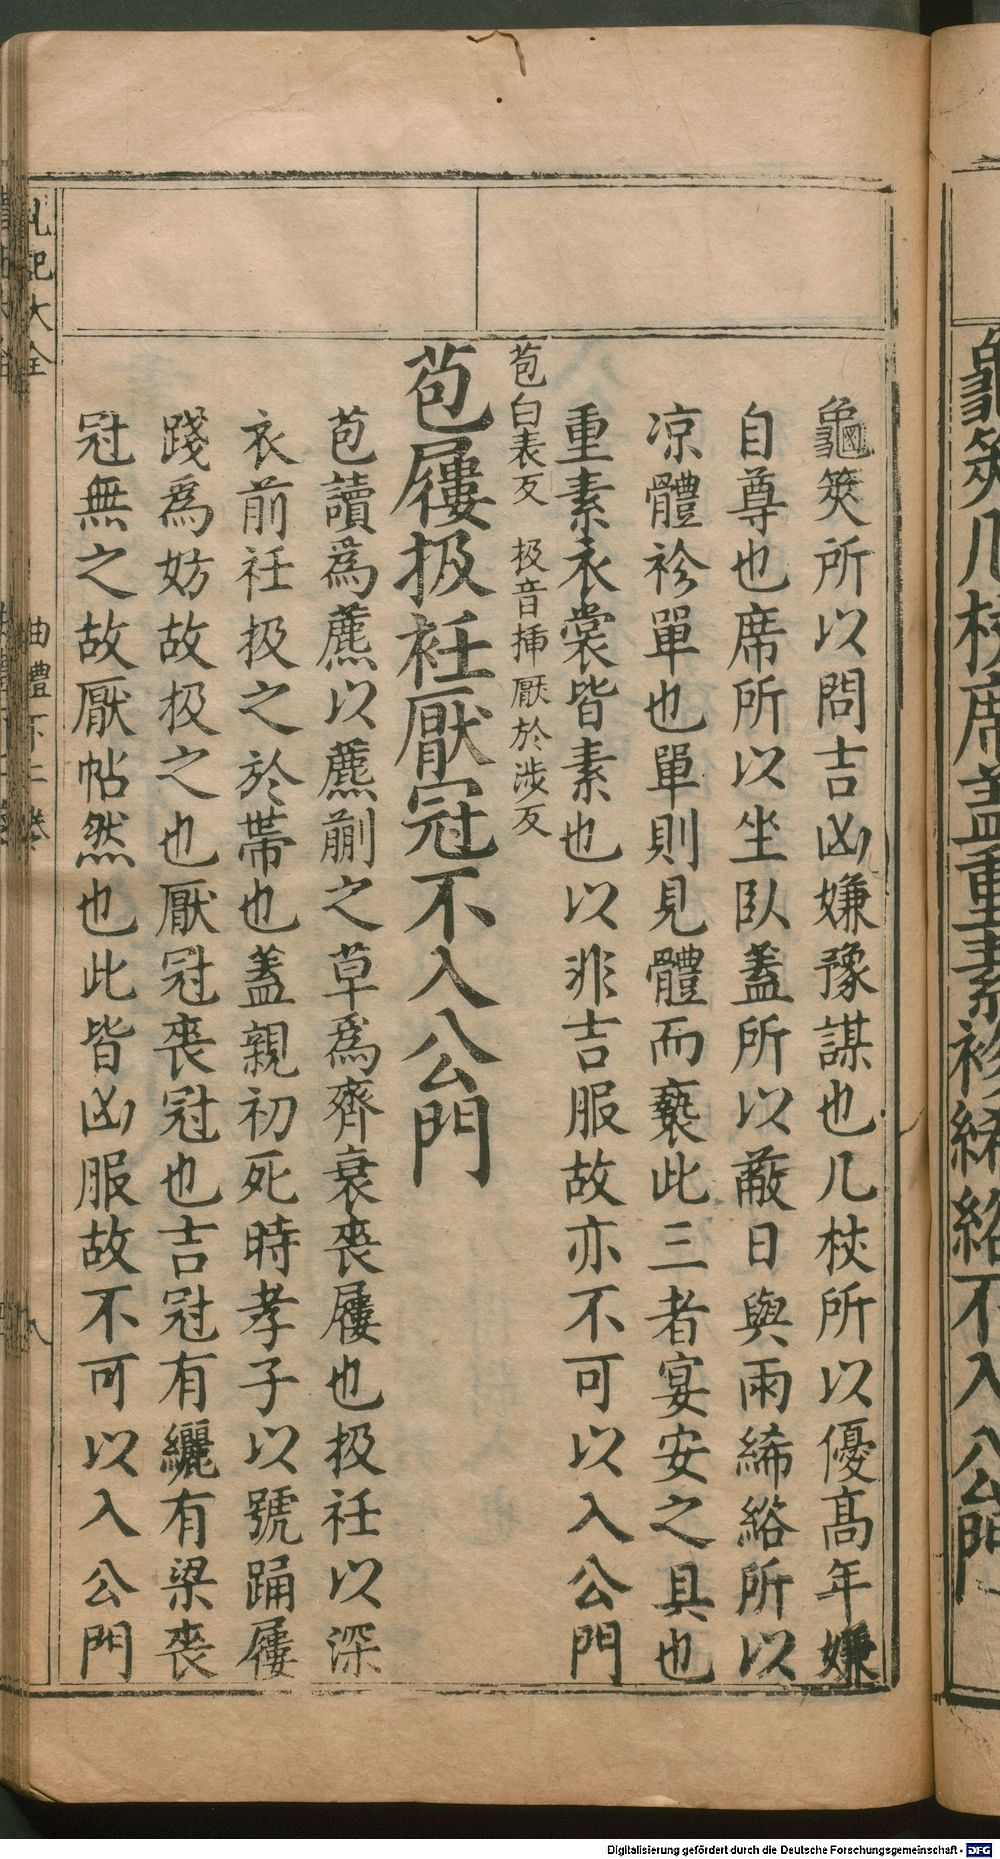 龜筴几杖席盖重素袗絺綌不入公門
龜筴所以問吉凶嫌豫謀也几杖所以優高年嫌
自尊也席所以坐臥蓋所以蔽日與雨絺綌所以
凉體袗單也單則見體而䙝此三者宴安之具也
重素衣裳皆素也以非吉服故亦不可以入公門
苞白表反 扱音揷 厭於涉反
苞屨扱衽厭冠不入公門
苞讀爲藨以藨蒯之草爲齊衰喪屨也扱衽以深
衣前衽扱之於帶也蓋親初死時孝子以號踊屨
踐爲妨故扱之也厭冠喪冠也吉冠有纚有梁喪
冠無之故厭帖然也此皆凶服故不可以入公門
礼記大全
曲禮下二卷
八
Digitalisierung gefördert durch die Deutsche Forschungsgemeinschaft - DFG